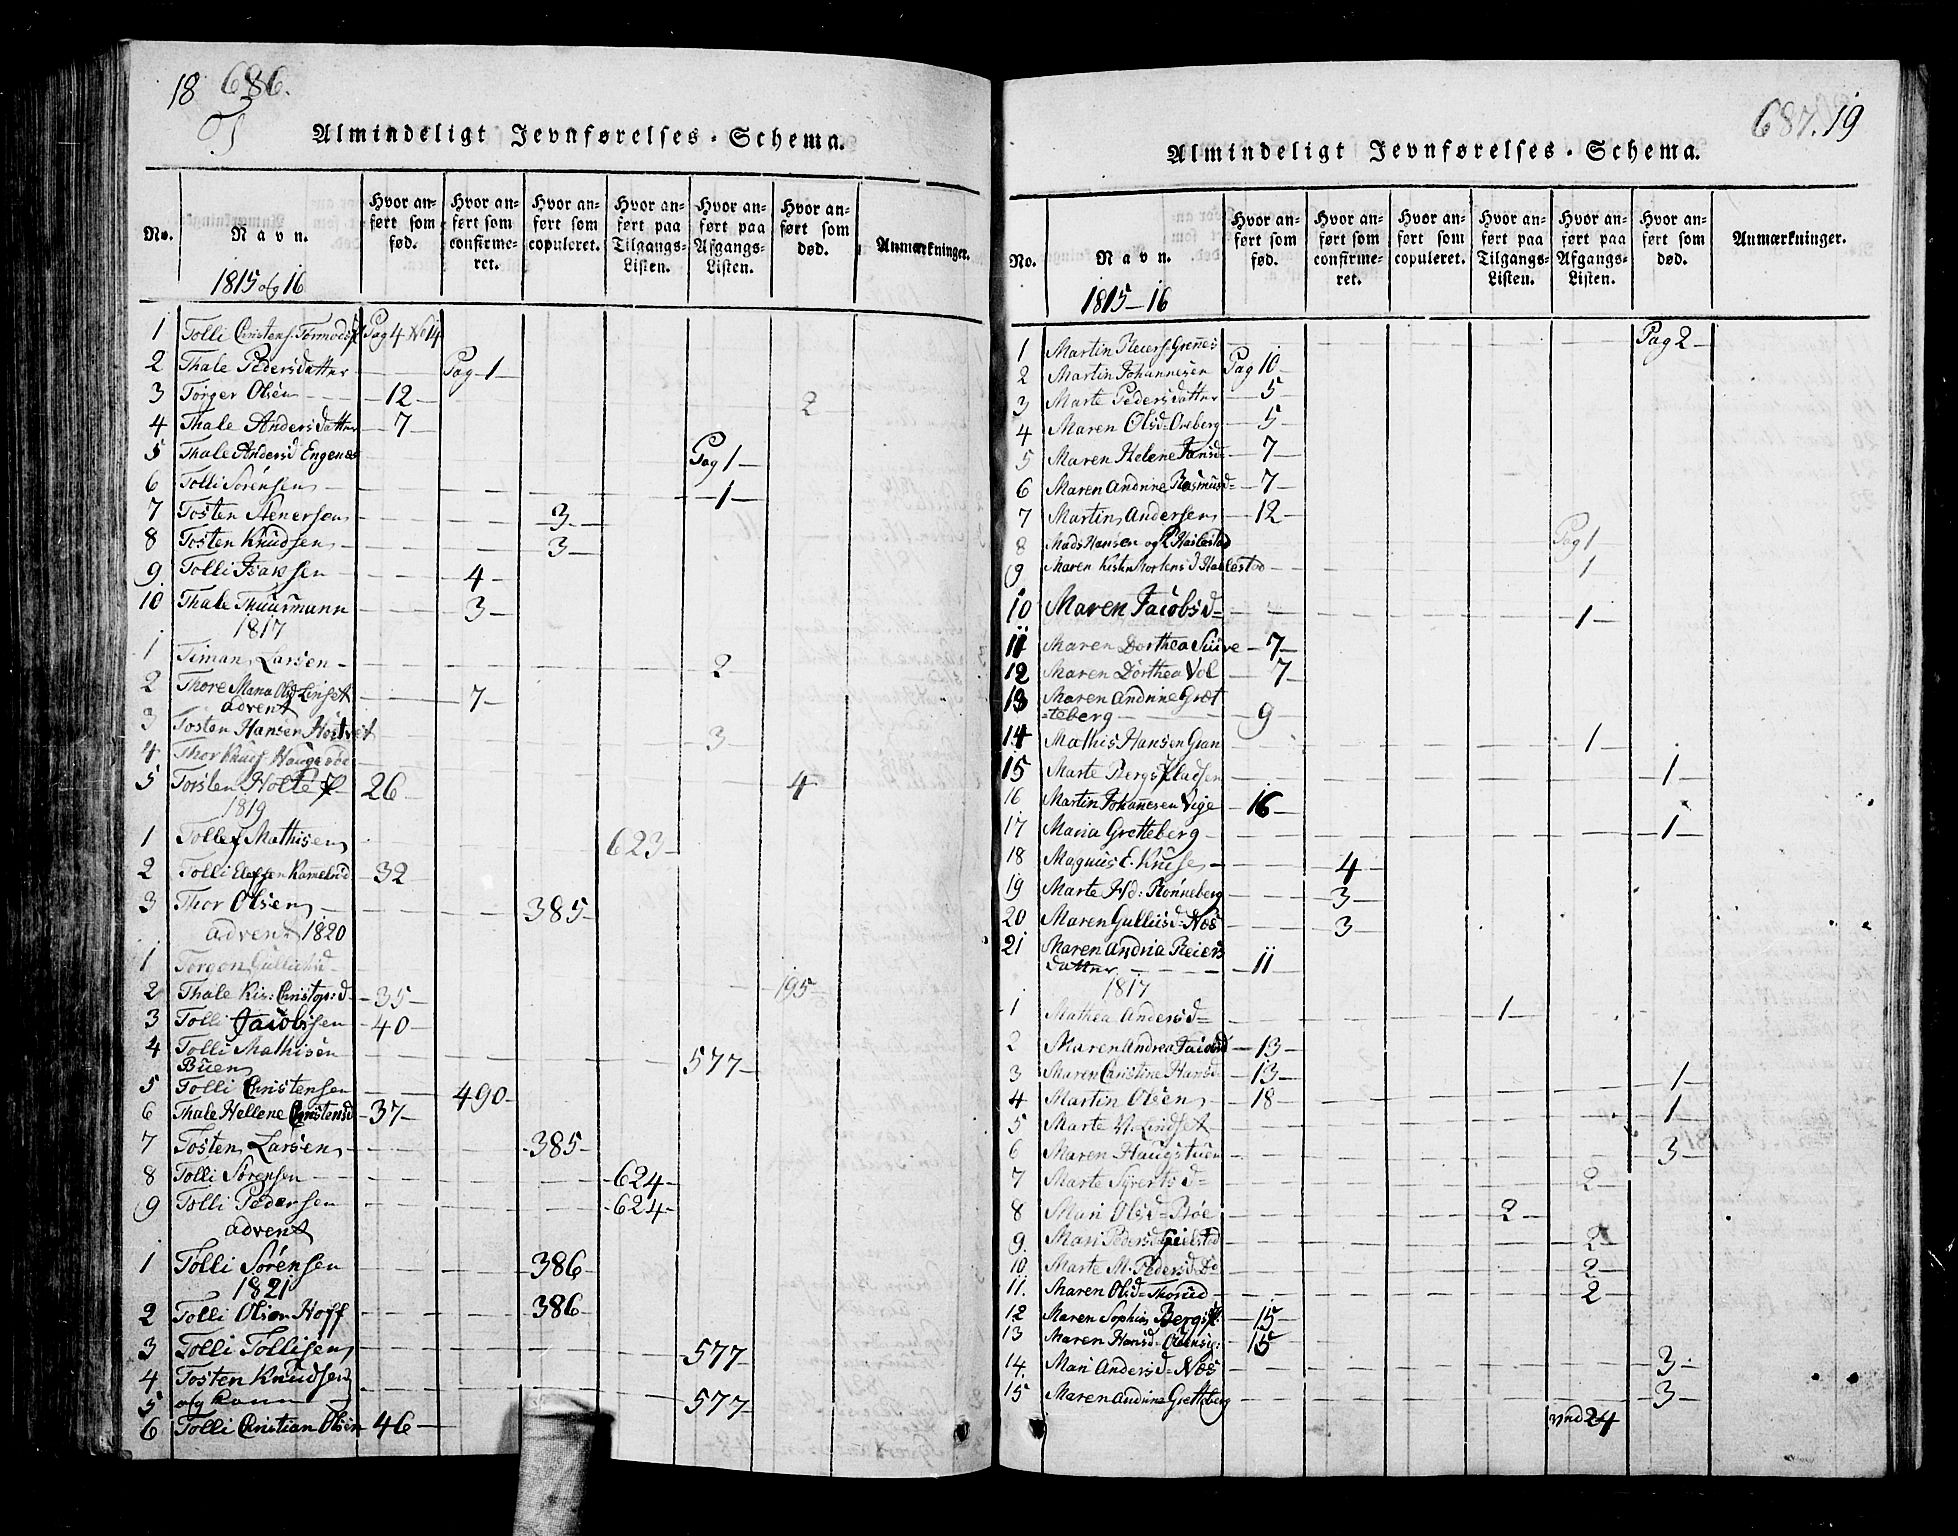 18 686.
T
Almindeligt Jevnførelses-Schema.
No. Navn. Hvor anført som fød. Hvor anført som confirmeret. Hvor anført som copuleret. Hvor anført paa Tilgangs-Listen. Hvor anført paa Afgangs-Listen. Hvor anført som død. Anmærkninger.
1815 og 16
1 Tolli Christens. Tormods Pag 4 No 14
2 Thale Pedersdatter Pag 1
3 Torger Olsen 12 2
4 Thale Andersdatter 7
5 Thale Andersd Engenes Pag 1
6 Tolli Sörensen 1
7 Tosten Stenersen 3
8 Tosten Knudsen 3
9 Tolli Isaksen 4
10 Thale Thuurmann 3
1817
1 Timan Larsen 2
2 Thore Maria Olsd Linset 7
advent
3 Tosten Hansen 3
4 Thor
5 Torsten Holte 26 4
1819
1 Tollef Mathisen 623
2 Tolli Elefsen 32
3 Thor Olsen 385
advent 1820
1 Torgon Gulliksd 195
2 Thale Kir: Christop:d 35
3 Tolli Jacobsen 40
4 Tolli Mathisen 577
Buen
5 Tolli Christensen 490
6 Thale Hellene Christensd 37
7 Tosten Larsen 385
8 Tolli Sørensen 624
9 Tolli Pedersen 624
advent
1 Tolli Sörensen 386
1821
2 Tolli Olsen Hoff 386
3 Tolli Tollisen 577
4 Tosten Knudsen
5 og Kone 577
6 Tolli Christian Olsen 46
687. 19
Almindeligt Jevnførelses-Schema.
No. Navn. Hvor anført som fød. Hvor anført som confirmeret. Hvor anført som copuleret. Hvor anført paa Tilgangs-Listen. Hvor anført paa Afgangs-Listen. Hvor anført som død. Anmærkninger.
1815-16
1 Martin Pag 2
2 Martin Johannesen Pag 10
3 Marte Pedersdatter 5
4 Maren Olsd 5
5 Maren Helene Jansd 7
6 Maren Andrine Rasmusd 7
7 Martin Andersen 12
8 Mads Hansen og Pag 1
9 Maren 1
10 Maren Jacobsd 1
11 Maren Dorthea 7
12 Maren Dorthea 7
13 Maren Andrine Græt
=teberg 9
14 Mathis Hansen Gran 1
15 Marte Bergspladsen 1
16 Martin Johannesen Vige 16
17 Maria Gretteberg 1
18 Magnus E. Kruse 4
19 Marte Rønneberg 3
20 Maren Gulliksd Næs 3
21 Maren Andria Reiers
datter 11
1817
1 Mathea Andersd 1
2 Maren Andrea Jacobsd 13
3 Maren Christine Hansd 13 1
4 Martin Olsen 18 1
5 Marte Lindset
6 Maren Haugstuen 3
7 Marte 2
8 Mari Olsd Böe 2
9. Mari Pedersd 2
10 Marte M. Pedersd 2
11. Maren Olsd 2
12 Maren Sophie Bergs 15
13 Maren Hansd 15
14. Mari Andersd Næs 3
15 Maren Andrine Gretteberg 3
24